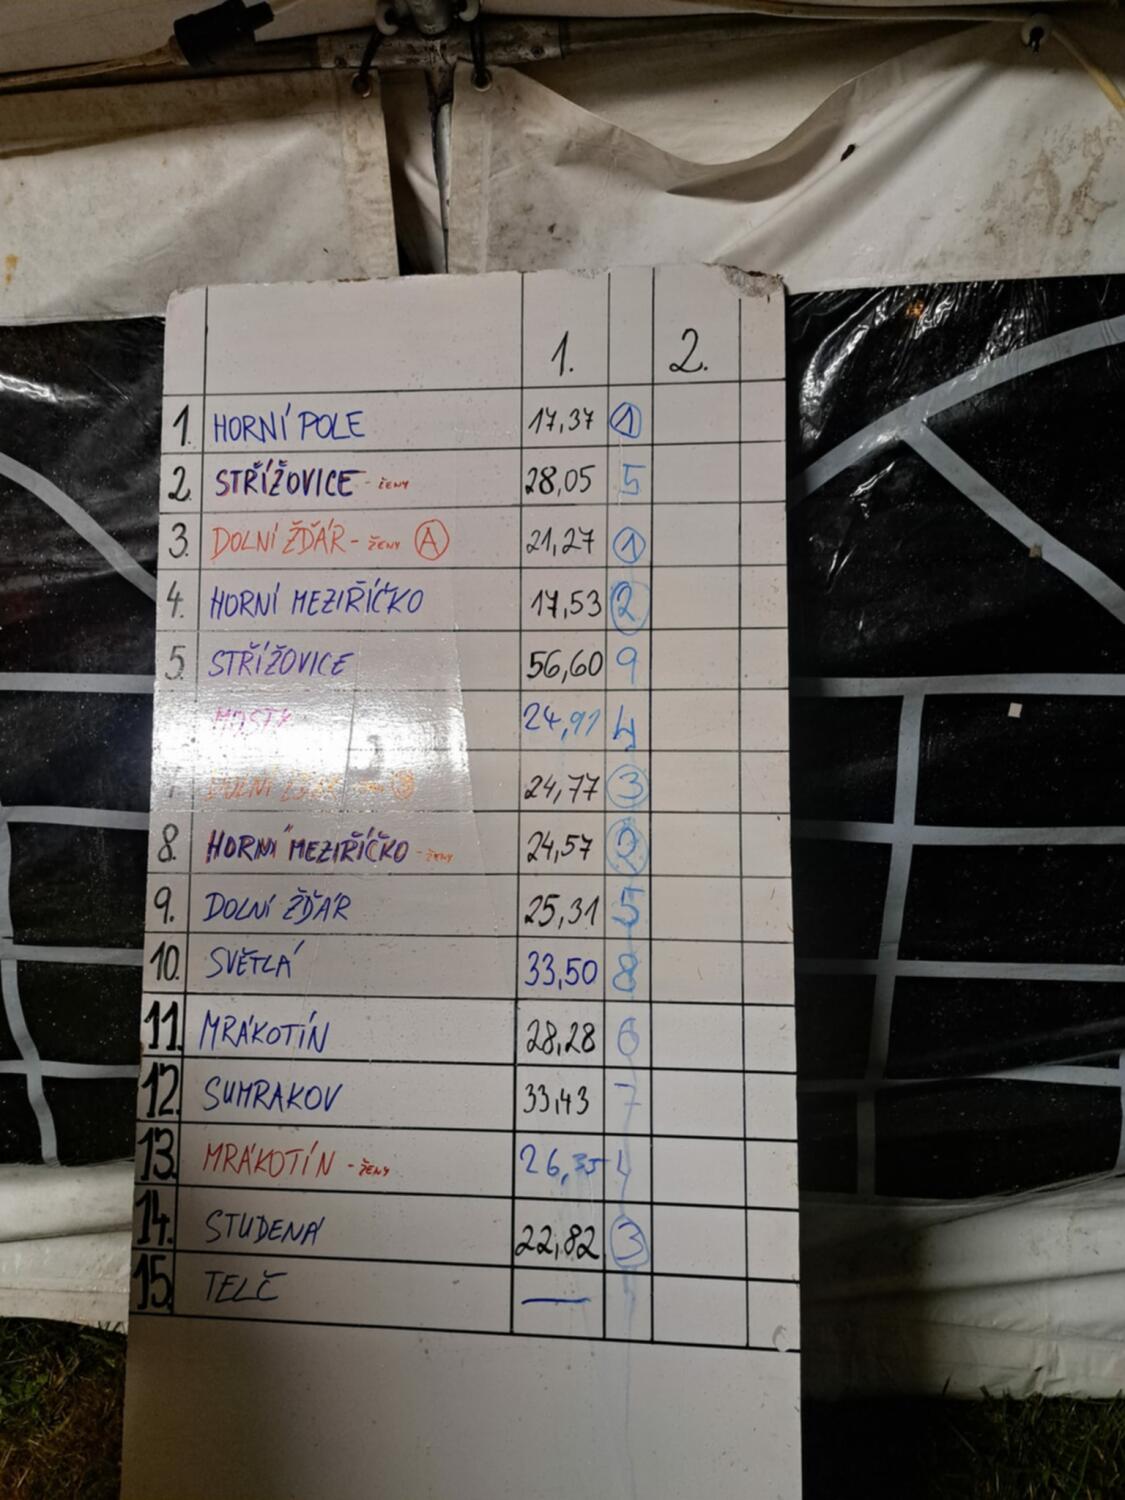 1. 2.
1. HORNÍ POLE 17,37 1
2. STŘÍŽOVICE - ŽENY 28,05 5
3. DOLNÍ ŽĎÁR - ŽENY A 21,27 1
4. HORNÍ MEZIŘÍČKO 17,53 2
5. STŘÍŽOVICE 56,60 9
24,91 4
7. DOLNÍ ŽĎÁR 24,77 3
8. HORNÍ MEZIŘÍČKO - ŽENY 24,57 2
9. DOLNÍ ŽĎÁR 25,31 5
10. SVĚTLÁ 33,50 8
11. MRÁKOTÍN 28,28 6
12. SUMRAKOV 33,43 7
13. MRÁKOTÍN - ŽENY
14. STUDENÁ 22,82 3
15. TELČ —